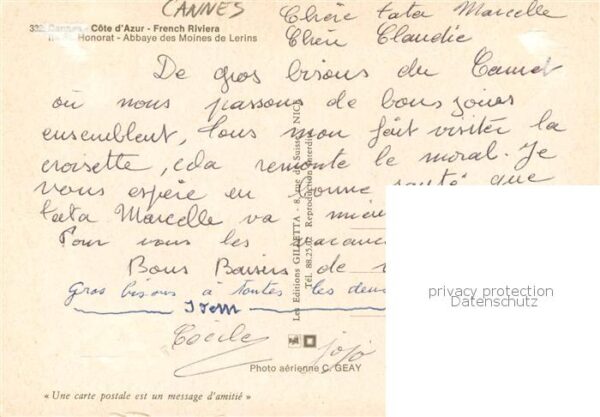 CANNES
332 Cannes - Côte d'Azur - French Riviera
Ile St. Honorat - Abbaye des Moines de Lerins
Chère tata Marcelle
Chère Claudie
De gros bisous du Cannet
où nous passons de bons jours
ensemblent, tous mon fait visiter la
croisette, cela remonte le moral. Je
vous espère en bonne santé que
tata Marcelle va
Pour vous les
Bons Baisers de
Gros bisous à toutes les deux
Item
Cécile
jojo
Les Editions GILLETTA - 8, rue de Suisse, NICE
Tél. 88.25.02 Reproduction interdite
Photo aérienne C. GEAY
« Une carte postale est un message d'amitié »
privacy protection
Datenschutz